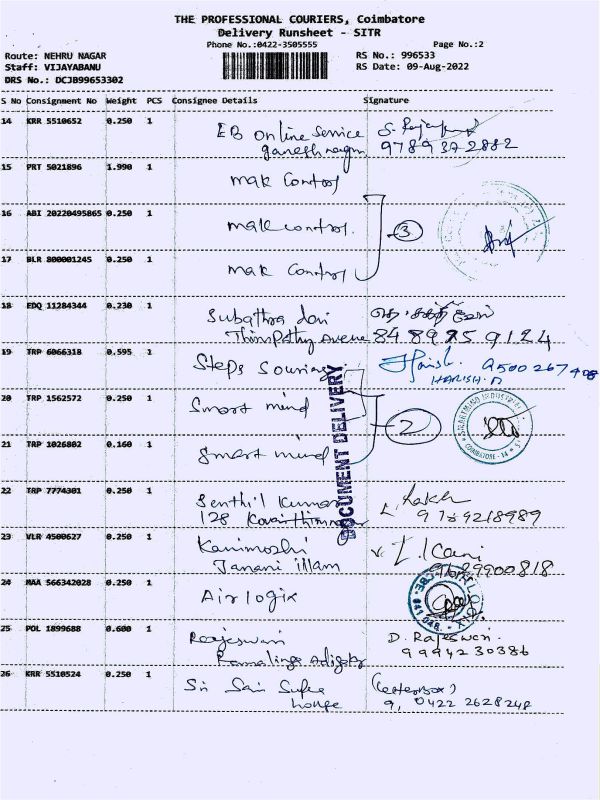 THE PROFESSIONAL COURIERS, Coimbatore
Delivery Runsheet - SITR
Phone No.:0422-3505555
Page No.:2
Route: NEHRU NAGAR
RS No.: 996533
Staff: VIJAYABANU
RS Date: 09-Aug-2022
DRS No.: DCJB99653302
S No Consignment No Weight PCS Consignee Details Signature
14 KRR 5510652 0.250 1 EB online Service
ganesh nagar 9789372882
15 PRT 5021896 1.990 1 mak Control
16 ABI 20220495865 0.250 1 mak control. 3
17 BLR 800001245 0.250 1 mak Control
18 EDQ 11284344 0.230 1 Subathra devi
Thirupathy Avenue 8489259124
19 TRP 6066318 0.595 1 Steps Souring Harish. 9500267408
HARISH.
20 TRP 1562572 0.250 1 Smart mind 2
SMARTMIND INDUSTRIES
COIMBATORE - 14
21 TRP 1026802 0.160 1 Smart mind
DOCUMENT DELIVERY
22 TRP 7774301 0.250 1 Senthil Kumar
128 9789218989
23 VLR 4500627 0.250 1 Kanimozhi
Janani illam 9629900818
24 MAA 566342028 0.250 1 Airlogix
25 POL 1899688 0.600 1 Rajeswari D. Rajeswari
Ramalinga Adigalar 9994230386
26 KRR 5510524 0.250 1 Sri Sai Supre (Letterbox)
house 9, 0422 2628248